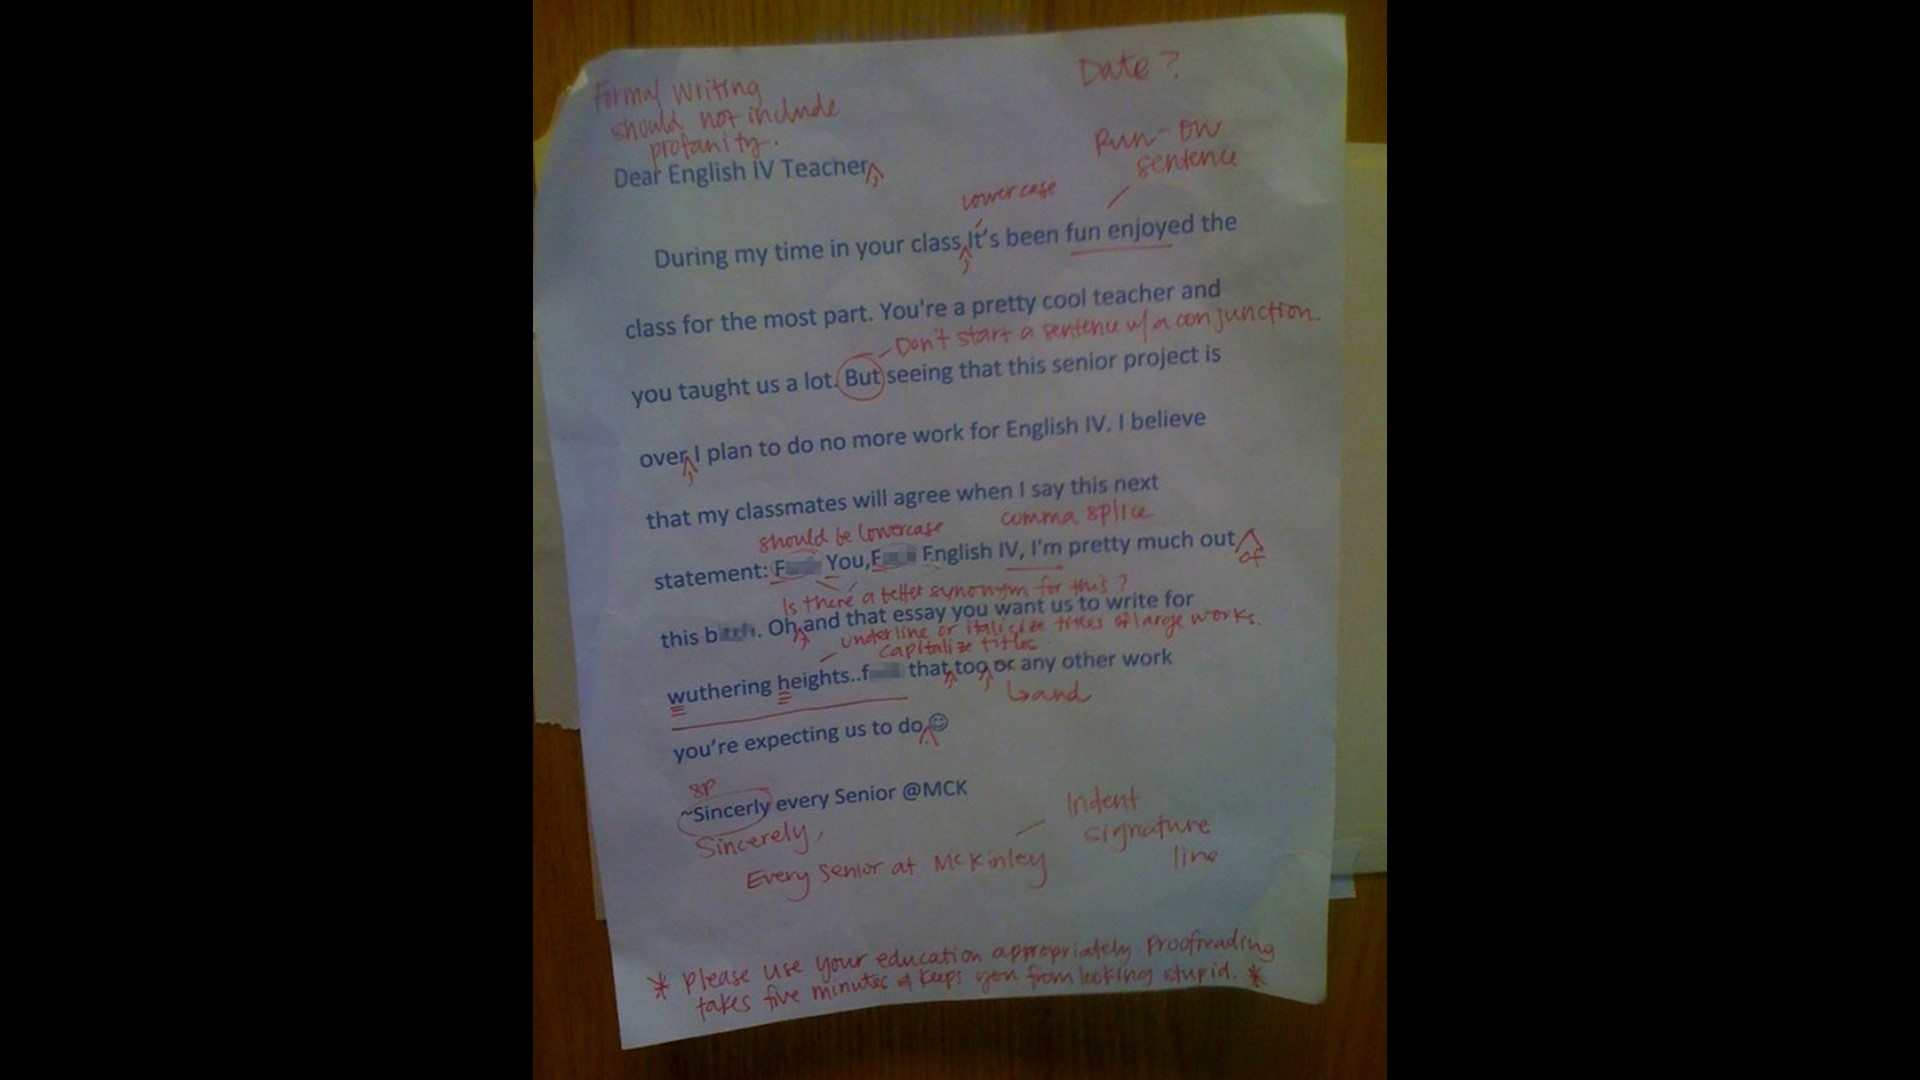 Date?
Formal writing
should not include
profanity.
Run-on
sentence
Dear English IV Teacher,
lowercase
During my time in your class,It's been fun enjoyed the
class for the most part. You're a pretty cool teacher and
Don't start a sentence w/ a conjunction.
you taught us a lot. But seeing that this senior project is
over,I plan to do no more work for English IV. I believe
that my classmates will agree when I say this next
should be lowercase
comma splice
statement: F You,F English IV, I'm pretty much out
of
Is there a better synonym for this?
this b. Oh,and that essay you want us to write for
underline or italicize titles of large works.
capitalize titles
wuthering heights..f that,too,or any other work
and
you're expecting us to do.☺
sp
~Sincerly every Senior @MCK
Sincerely,
Every Senior at McKinley
Indent
signature
line
* Please use your education appropriately. Proofreading
takes five minutes & keeps you from looking stupid. *